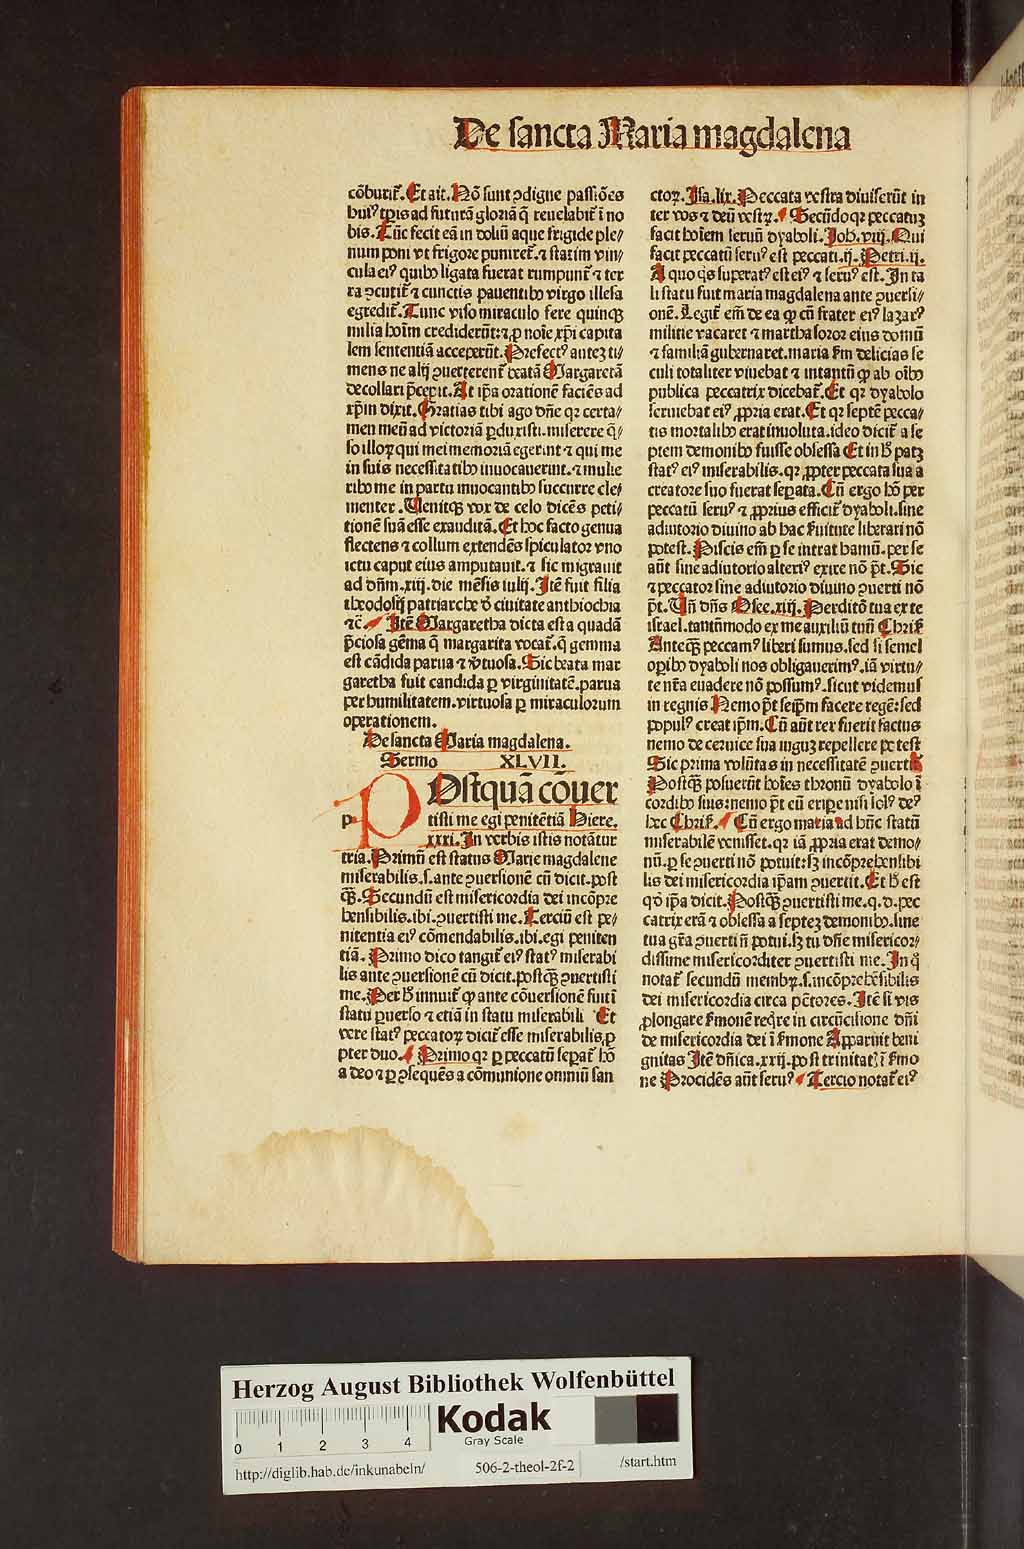 De sancta Maria magdalena
cōburit᷑. Et ait. Nō sunt ↄdigne passiões
huiꝰ tp̄is ad futurā gloriā q̄ reuelabit᷑ ī no
bis. Tūc fecit eā in doliū aque frigide ple⸗
num poni vt frigore puniret᷑. ⁊ statim vin⸗
cula eiꝰ quibꝰ ligata fuerat rumpunt᷑ ⁊ ter
ra ↄcutit᷑ ⁊ cunctis pauentibꝰ virgo illesa
egredit᷑. Tunc viso miraculo fere quinqꝫ
milia hoīm crediderūt: ⁊ ꝓ noīe xp̄i capita
lem sententiā acceperūt. Prefectꝰ auteꝫ ti⸗
mens ne alij ↄuerterent᷑ beatā Margaretā
decollari p̄cepit. At ip̄a orationē faciēs ad
xp̄m dixit. Gratias tibi ago dn̄e qꝛ certa⸗
men meū ad victoriā ꝑduxisti. miserere q̄⸗
so illoꝝ qui mei memoriā egerint ⁊ qui me
in suis necessitatibꝰ inuocauerint. ⁊ mulie
ribꝰ me in partu inuocantibꝰ succurre cle⸗
menter. Uenitqꝫ vox de celo dicēs peti⸗
tionē suā esse exauditā. Et hoc facto genua
flectens ⁊ collum extendēs spiculator vno
ictu caput eius amputauit. ⁊ sic migrauit
ad dn̄m. xiij. die mēsis iulij. Itē fuit filia
theodosij patriarche d̄ ciuitate anthiochia
⁊c̄. Itē Margaretha dicta est a quadā
p̄ciosa gēma q̄ margarita vocat᷑. q̄ gemma
est cādida parua ⁊ v̄tuosa. Sic beata mar
garetha fuit candida ꝑ virginitatē. parua
per humilitatem. virtuosa ꝑ miraculorum
operationem.
De sancta Maria magdalena.
Sermo XLVII.
p Ostquā cōuer
tisti me egi penitētiā Hiere.
xxxi. In verbis istis notātur
tria. Primū est status Marie magdalene
miserabilis. s. ante ↄuersionē cū dicit. post
qꝫ. Secundū est misericordia dei incōpre
hensibilis. ibi. ↄuertisti me. Terciū est pe⸗
nitentia eiꝰ cōmendabilis. ibi. egi peniten
tiā. Primo dico tangit᷑ eiꝰ statꝰ miserabi
lis ante ↄuersionē cū dicit. postqꝫ ↄuertisti
me. Per h̄ innuit᷑ ꝙ ante cōuersionē fuit ī
statu ꝑuerso ⁊ etiā in statu miserabili Et
vere statꝰ peccatoꝝ dicit᷑ esse miserabilis, ꝓ
pter duo. Primo qꝛ ꝑ peccatū seꝑat᷑ hō
a deo ⁊ ꝑ ↄsequēs a cōmunione omniū san
ctoꝝ. Isa. lix. Peccata vestra diuiserūt in
ter vos ⁊ deū vestꝝ. Secūdo qꝛ peccatuꝫ
facit hoīem seruū dyaboli. Joh. viij. Qui
facit peccatū seruꝰ est peccati. ij. Petri. ij.
A quo q̄s superatꝰ est eiꝰ ⁊ seruꝰ est. In ta
li statu fuit maria magdalena ante ↄuersi⸗
onē. Legit᷑ em̄ de ea ꝙ cū frater eiꝰ lazarꝰ
militie vacaret ⁊ martha soror eius domū
⁊ familiā gubernaret. maria ẜm delicias se
culi totaliter viuebat ⁊ intantū ꝙ ab oībꝰ
publica peccatrix dicebat᷑. Et qꝛ dyabolo
seruiebat eiꝰ ꝓpria erat. Et qꝛ septē pecca⸗
tis mortalibꝰ erat inuoluta. ideo dicit᷑ a se
ptem demonibꝰ fuisse obsessa Et in h̄ patꝫ
statꝰ eiꝰ miserabilis. qꝛ ꝓpter peccata sua a
creatore suo fuerat seꝑata. Cū ergo hō per
peccatū seruꝰ ⁊ ꝓprius efficit᷑ dyaboli. sine
adiutorio diuino ab hac ẜuitute liberari nō
potest. Piscis em̄ ꝑ se intrat hamū. per se
aūt sine adiutorio alteriꝰ exire nō p̄t. Sic
⁊ peccator sine adiutorio diuino ↄuerti nō
p̄t. Un̄ dn̄s Osee. xiij. Perditō tua ex te
israel. tantūmodo ex me auxiliū tuū Chriſ.
Anteqꝫ peccamꝰ liberi sumus. sed si semel
oꝑibꝰ dyaboli nos obligauerimꝰ. iā virtu⸗
te nr̄a euadere nō possumꝰ. sicut videmus
in regnis. Nemo p̄t seip̄m facere regē: sed
populꝰ creat ip̄m. Cū aūt rex fuerit factus
nemo de ceruice sua iuguꝫ repellere potest
Sic prima volūtas in necessitatē ↄuertit᷑
Postqꝫ posuerūt hoīes thronū dyabolo ī
cordibꝰ suis: nemo p̄t eū eriꝑe nisi solꝰ deꝰ
hec Chriſ. Cū ergo maria ad hūc statū
miserabilē venisset. qꝛ iā ꝓpria erat demo⸗
nū. ꝑ se ↄuerti nō potuit: sꝫ incōprehensibi
lis dei misericordia ip̄am ↄuertit. Et h̄ est
qd̄ ip̄a dicit. Postqꝫ ↄuertisti me. q. d. pec
catrix erā ⁊ obsessa a septeꝫ demonibꝰ. sine
tua gr̄a ↄuerti n̄ potui. sꝫ tu dn̄e misericor⸗
dissime misericorditer ↄuertisti me. In q̊
notat᷑ secundū membꝝ. s. incōprehēsibilis
dei misericordia circa pctōres. Itē si vis
ꝓlongare ẜmonē req̄re in circūcisione dn̄i
de misericordia dei ī ẜmone Apparuit beni
gnitas Itē dn̄ica. xxij. post trinitat᷑. ī ẜmo
ne Procidēs aūt seruꝰ Tercio notat᷑ eiꝰ
Herzog August Bibliothek Wolfenbüttel
0 1 2 3 4
Kodak
Gray Scale
http://diglib.hab.de/inkunabeln/ 506-2-theol-2f-2 /start.htm